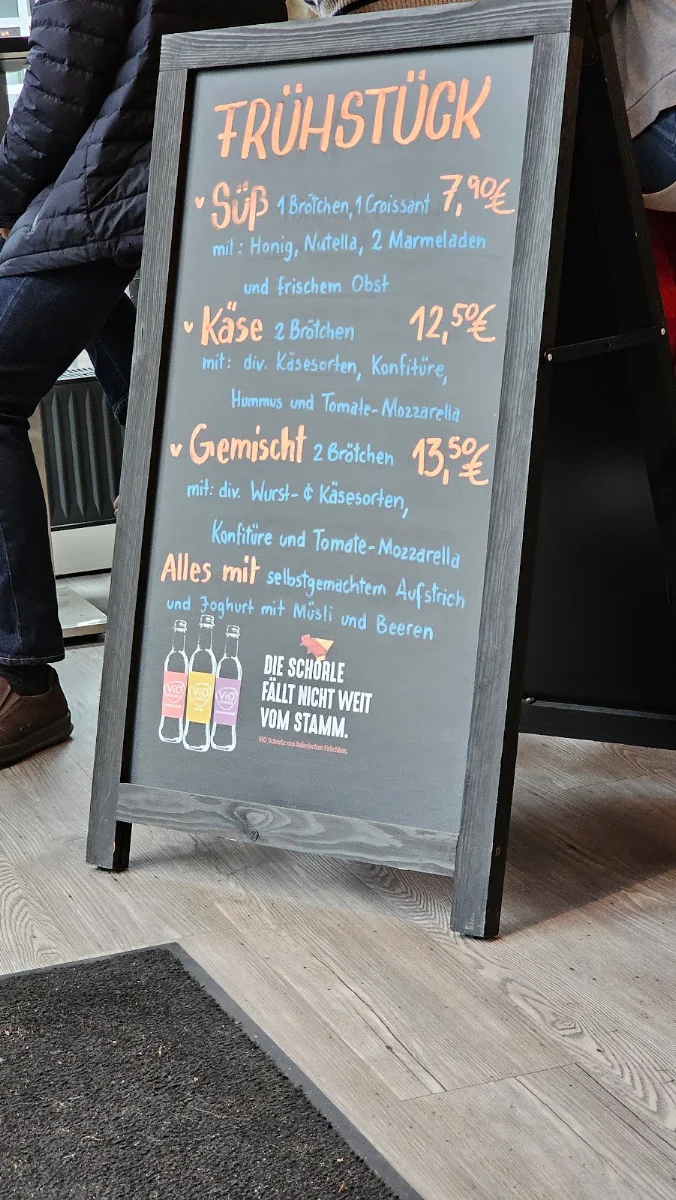 FRÜHSTÜCK
Süß 1 Brötchen, 1 Croissant 7,90€
mit: Honig, Nutella, 2 Marmeladen
und frischem Obst
Käse 2 Brötchen 12,50€
mit: div. Käsesorten, Konfitüre,
Hummus und Tomate-Mozzarella
Gemischt 2 Brötchen 13,50€
mit: div. Wurst- & Käsesorten,
Konfitüre und Tomate-Mozzarella
Alles mit selbstgemachtem Aufstrich
und Joghurt mit Müsli und Beeren
ViO ViO ViO
DIE SCHORLE
FÄLLT NICHT WEIT
VOM STAMM.
ViO Schorle aus heimischen Früchten.